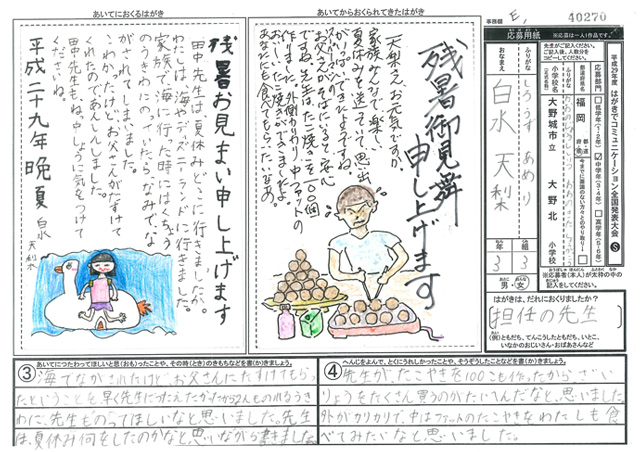 事務欄
E,
40270
応募用紙
※応募は一人1作品です。
平成29年度 はがきでコミュニケーション全国発表大会 S
応募部門
低学年(1・2年)
中学年(3・4年)
高学年(5・6年)
福岡
大野城市立
大野北
小学校
おなまえ
ふりがな
しろうず あめり
白水 天梨
3年
3組
男・女
※応募者(本人)が太枠の中
はがきは、だれにおくりましたか?
担任の先生
(例)ともだち、てんこうしたともだち、いとこ、
いなかのおじいさん・おばあさんなど
あいてからおくられてきたはがき
残暑御見舞
申し上げます
天梨さんお元気ですか。
家族みんなで楽しい
夏休みを送っていて、思い出
がいっぱいできたようですね。
お父さんがそばにいると安心
ですね。先生は、たこ焼きを一〇〇個
作りました。外側カリカリ、中はフアットの
おいしいたこ焼きができましたよ。
あいてにおくるはがき
残暑お見まい申し上げます
田中先生は、夏休みどこに行きましたか。
わたしは、海やディズニーランドに行きました。
家族で海に行った時にはくちょう
のうきわにのっていたらなみでな
がされてしまいました。
こわかったけどお父さんがたすけて
くれたのであんしんしました。
田中先生もねっ中しょうに気をつけて
くださいね。
平成二十九年晩夏
天梨
③
あいてにつたわってほしいと思(おも)ったことや、その時(とき)のきもちなどを書(か)きましょう。
海でながされたけど、お父さんにたすけてもらっ
たということを早く先生につたえたかったから2人ものれるうき
わに、先生ものってほしいなと思いました。先生
は、夏休み何をしたのかなと思いながら書きました。
④
へんじをよんで、とくにうれしかったことや、そうぞうしたことなどを書(か)きましょう。
先生が、たこやきを100こも作ったからざい
りょうをたくさん買うのがたいへんだなと、思いました。
外がカリカリで、中はファットのたこやきをわたしも食
べてみたいなと思いました。